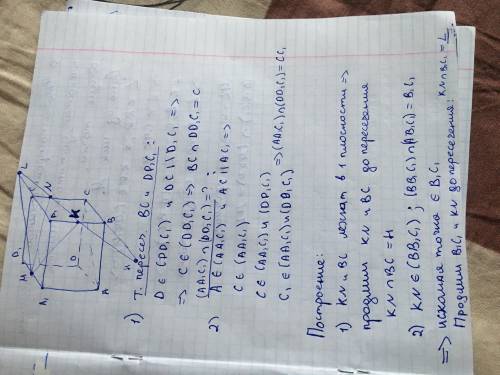 1) Т. пересеч. BC и DD₁C₁ :
D ∈ (DD₁C₁) и DC ∥ D₁C₁ =>
=> C ∈ (DD₁C₁) => BC ∩ DD₁C₁ = C
2) (AA₁C₁) ∩ (DD₁C₁) = ?
A ∈ (AA₁C₁) и AC ∥ A₁C₁ =>
C ∈ (AA₁C₁)
C ∈ (AA₁C₁) и (DD₁C₁) => (AA₁C₁) ∩ (DD₁C₁) = CC₁
C₁ ∈ (AA₁C₁) и (DD₁C₁)
Построение:
1) KN и BC лежат в 1 плоскости =>
продлим KN и BC до пересечения
KN ∩ BC = H
2) KN ∈ (BB₁C₁) ; (BB₁C₁) ∩ (A₁B₁C₁) = B₁C₁
=> искомая точка ∈ B₁C₁
Продлим B₁C₁ и KN до пересечения: KN ∩ B₁C₁ = L
L
N
D₁
M
K
C
B
A₁
D
A
H